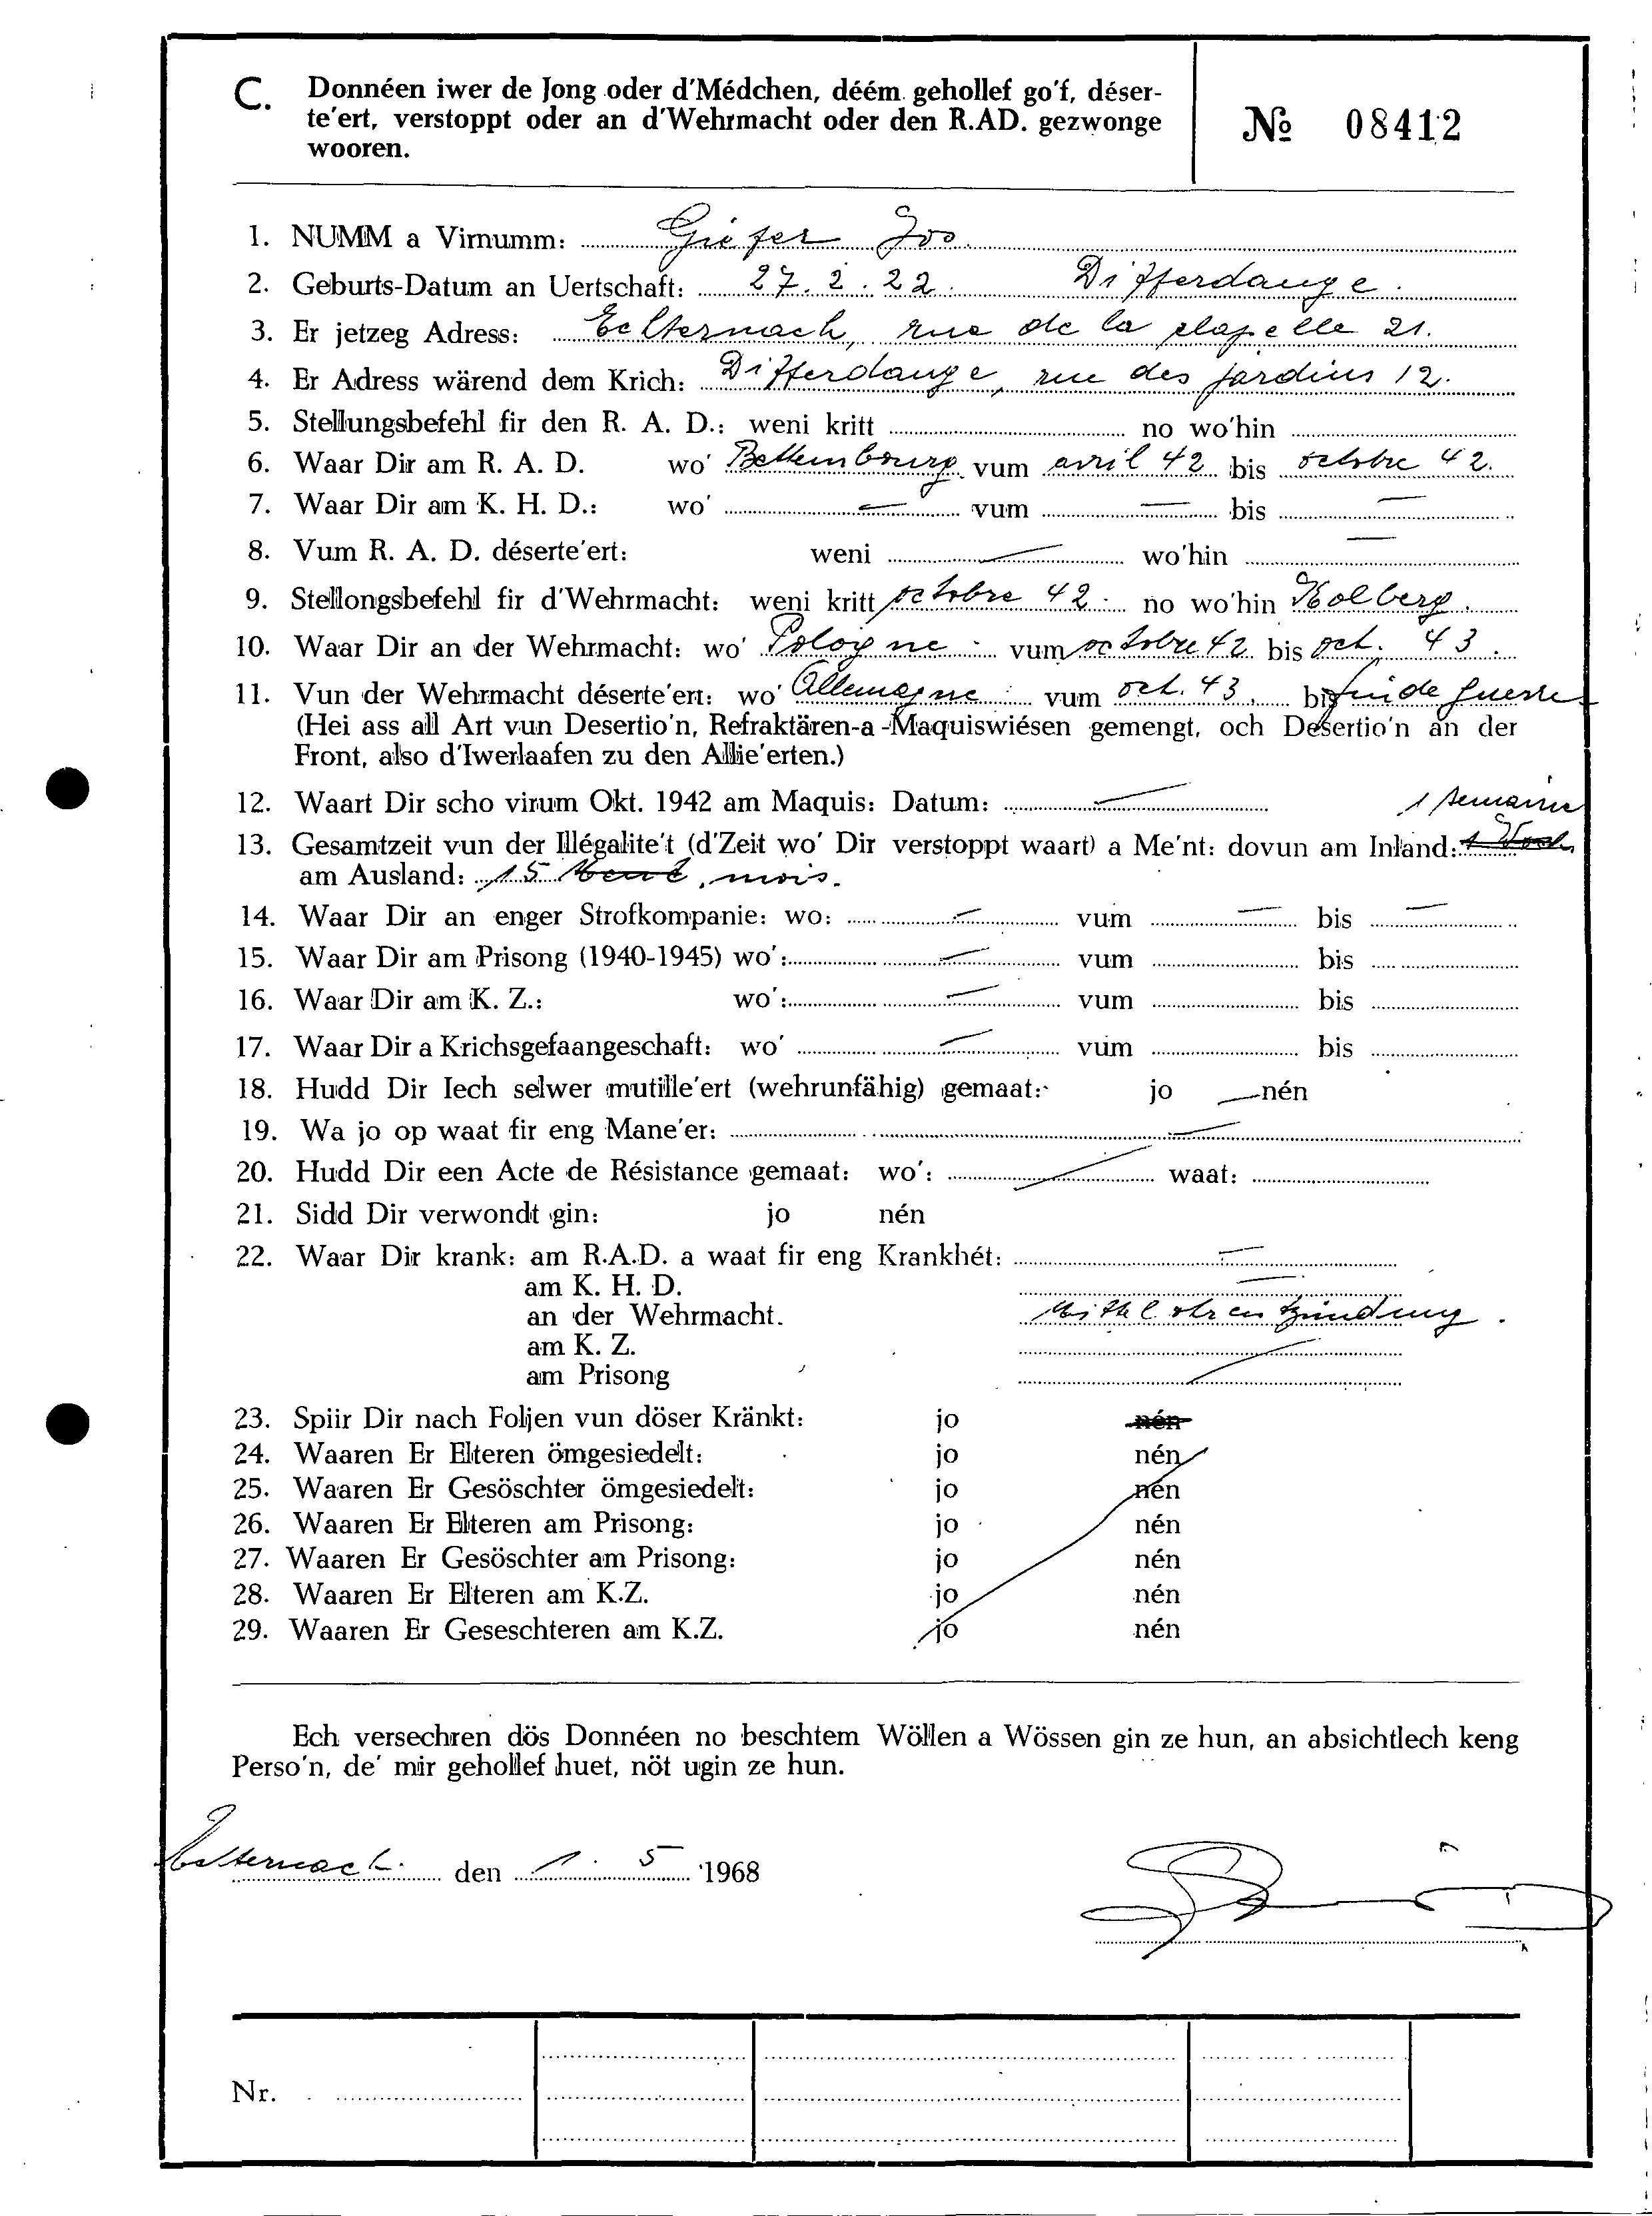 C. Donnéen iwer de Jong oder d'Médchen, déém gehollef go'f, déser-
te'ert, verstoppt oder an d'Wehrmacht oder den R.AD. gezwonge
wooren.
№ 08412
1. NUMM a Virnumm: Giefer Joo
2. Geburts-Datum an Uertschaft: 27. 2. 22. Differdange.
3. Er jetzeg Adress: Echternach, rue de la chapelle 21.
4. Er Adress wärend dem Krich: Differdange, rue des jardins 12.
5. Stellungsbefehl fir den R. A. D.: weni kritt no wo'hin
6. Waar Dir am R. A. D. wo' Bettembourg vum avril 42 bis octobre 42.
7. Waar Dir am K. H. D.: wo' — vum — bis —
8. Vum R. A. D. déserte'ert: weni — wo'hin —
9. Stellongsbefehl fir d'Wehrmacht: weni kritt octobre 42. no wo'hin Kolberg.
10. Waar Dir an der Wehrmacht: wo' Pologne vum octobre 42 bis oct. 43.
11. Vun der Wehrmacht déserte'ert: wo' Allemagne vum oct. 43. bis fin de guerre
(Hei ass all Art vun Desertio'n, Refraktären-a-Maquiswiésen gemengt, och Desertio'n an der
Front, also d'Iwerlaafen zu den Allie'erten.)
12. Waart Dir scho virum Okt. 1942 am Maquis: Datum: —
1 semaine
13. Gesamtzeit vun der Illégalite't (d'Zeit wo' Dir verstoppt waart) a Me'nt: dovun am Inland: 1 Woch
am Ausland: 15 mois.
14. Waar Dir an enger Strofkompanie: wo: — vum — bis —
15. Waar Dir am Prisong (1940-1945) wo': — vum bis
16. Waar Dir am K. Z.: wo': — vum bis
17. Waar Dir a Krichsgefaangeschaft: wo' — vum bis
18. Hudd Dir Iech selwer mutille'ert (wehrunfähig) gemaat: jo — nén
19. Wa jo op waat fir eng Mane'er: —
20. Hudd Dir een Acte de Résistance gemaat: wo': — waat:
21. Sidd Dir verwondt gin: jo nén
22. Waar Dir krank: am R.A.D. a waat fir eng Krankhét: —
am K. H. D. —
an der Wehrmacht. Mittelohrentzündung.
am K. Z.
am Prisong
23. Spiir Dir nach Foljen vun döser Kränkt: jo nén
24. Waaren Er Elteren ömgesiedelt: jo nén
25. Waaren Er Gesöschter ömgesiedelt: jo nén
26. Waaren Er Elteren am Prisong: jo nén
27. Waaren Er Gesöschter am Prisong: jo nén
28. Waaren Er Elteren am K.Z. jo nén
29. Waaren Er Geseschteren am K.Z. jo nén
Ech versechren dös Donnéen no beschtem Wöllen a Wössen gin ze hun, an absichtlech keng
Perso'n, de' mir gehollef huet, nöt ugin ze hun.
Echternach. den 1. 5 1968
Nr.